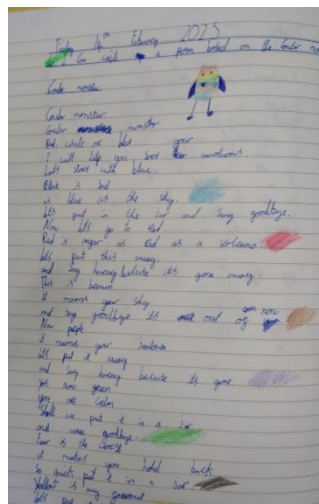 Friday 14th February 2025
I can write a poem based on the Color
Color monster
Color monster.
Color monster
Red, white or blue
I will help you your emotions.
Lets start with blue.
Blue is sad
as blue as the sky.
lets put in the jar and say goodbye.
Now lets go to Red.
Red is anger as Red as a volcano
lets put this away.
and say hooray because its gone away.
This is brown
it means your shy
and say goodbye its out of you now
Now purple
it means your
lets put it away
and say hooray because its gone.
yes now green
you are calm
Shall we put it in a jar
and wave goodbye.
Fear is the worst
it makes you hold back
So quick put it in a jar.
Yellow is my favourite
lets put